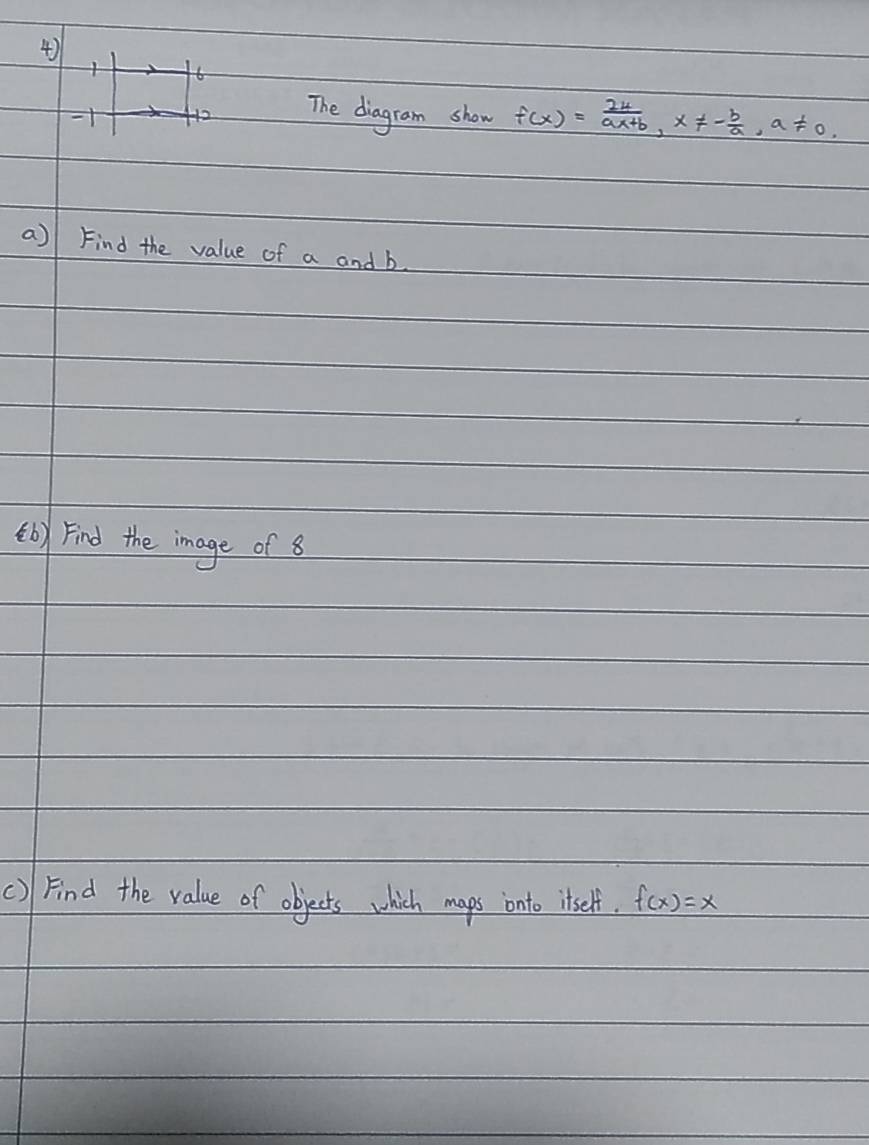 4)
1 6
-1 12
The diagram show f(x) = 24/(ax+b), x ≠ -b/a, a ≠ 0.
a) Find the value of a and b.
b) Find the image of 8
c) Find the value of objects which maps onto itself. f(x)=x